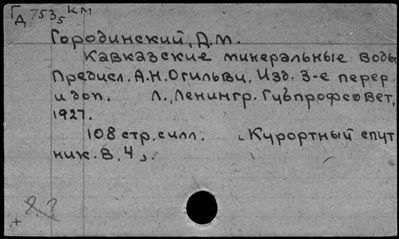 Гд 753/5 км
Городинский, Д.М.
Кавказские минеральные воды
Предисл. А.Н. Огильви. Изд. 3-е перер.
и доп. Л., Ленингр. Губпрофсовет,
1927.
108 стр. с илл. „Курортный спут
ник. В. 4„.